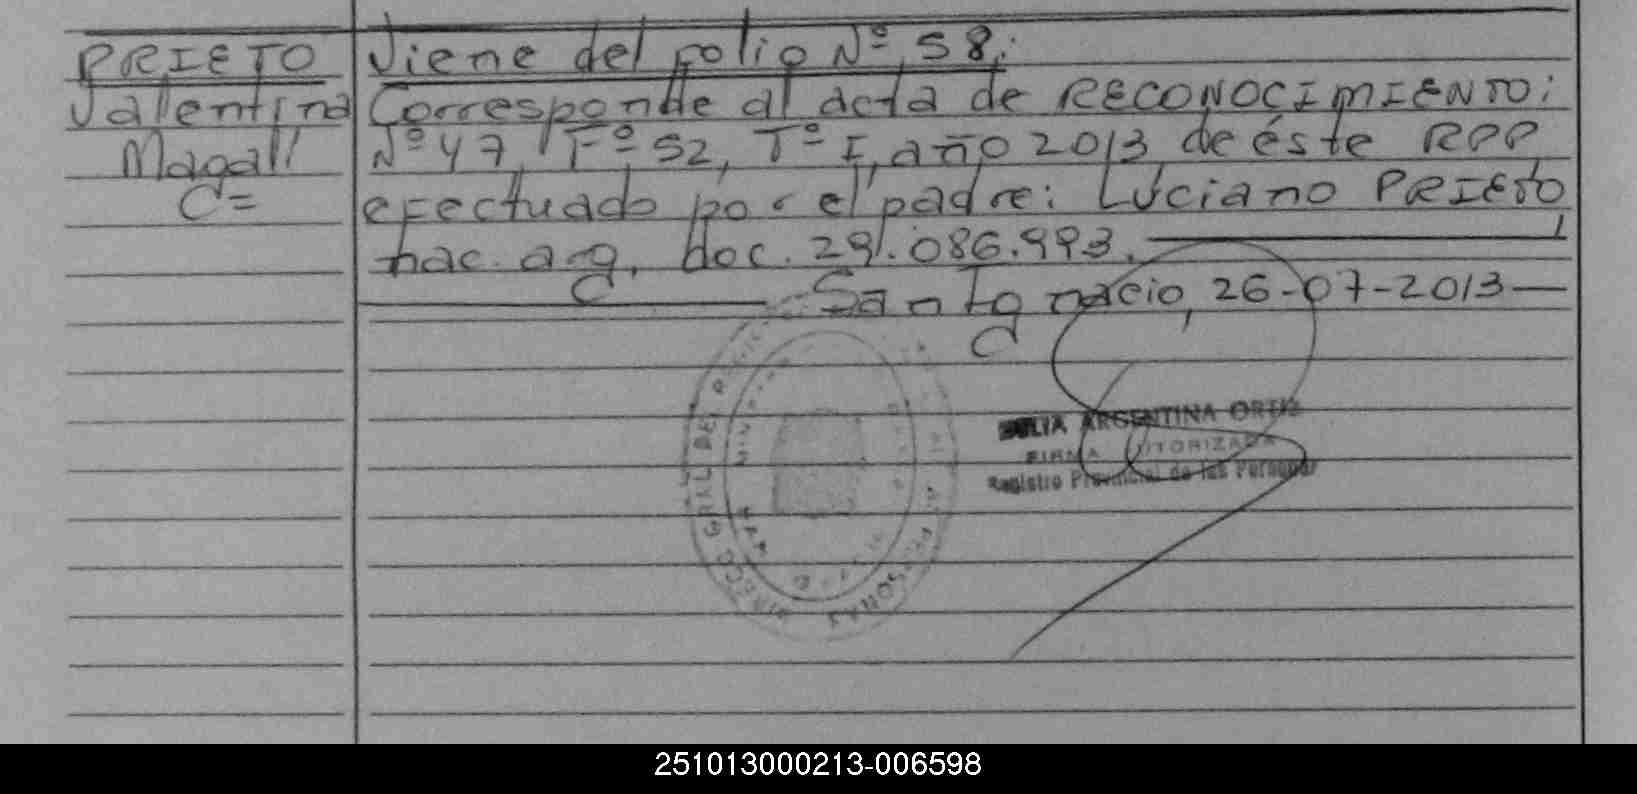 PRIETO
Valentina
Magalí
C=
Viene del folio Nº 58:
Corresponde al acta de RECONOCIMIENTO:
Nº 47, Fº 52, Tº I, año 2013 de éste RPP
efectuado por el padre: Luciano PRIETO
nac. arg. doc. 29.086.993.
C
San Ignacio, 26-07-2013
C
ARGENTINA ORTIZ
FIRMA AUTORIZADA
Registro Provincial de las Personas
DIRECC GRAL DEL PERSONAS
251013000213-006598